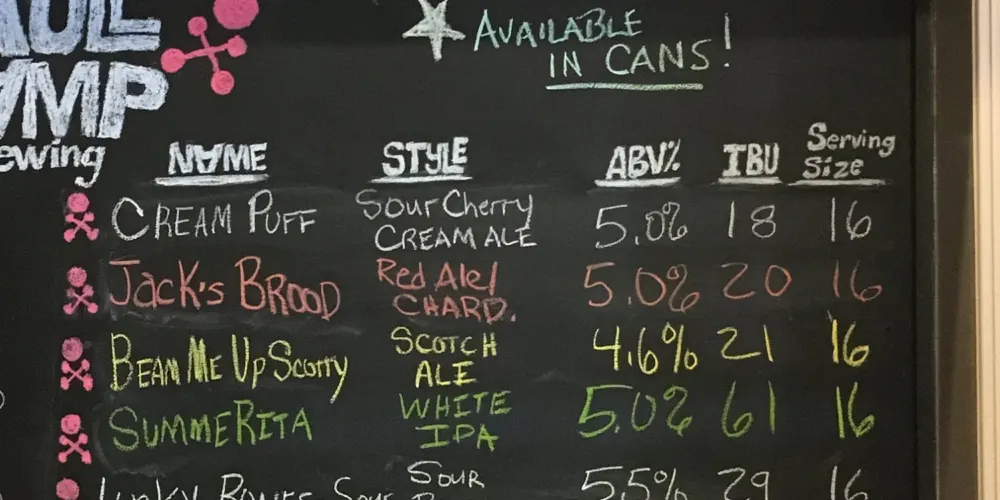 AVAILABLE
IN CANS!
ewing
NAME STYLE ABV% IBU Serving Size
CREAM PUFF Sour Cherry CREAM ALE 5.0% 18 16
Jack's BROOD Red Ale/ CHARD. 5.0% 20 16
BEAM ME UP Scotty SCOTCH ALE 4.6% 21 16
SUMMERITA WHITE IPA 5.0% 61 16
SOUR 5.5% 29 16